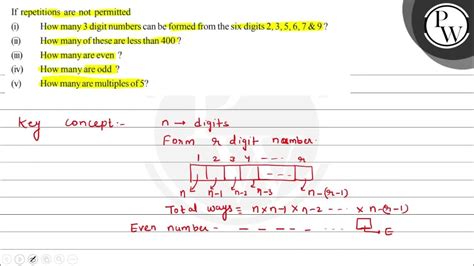 If repetitions are not permitted
(i) How many 3 digit numbers can be formed from the six digits 2, 3, 5, 6, 7 & 9 ?
(ii) How many of these are less than 400 ?
(iii) How many are even ?
(iv) How many are odd ?
(v) How many are multiples of 5?
PW
Key concept:- n → digits
Form r digit number.
1 2 3 4 ---- r
n n-1 n-2 n-3 n-(r-1)
Total ways = n×n-1×n-2 ---- × n-(r-1)
Even number - – – – – – – → E